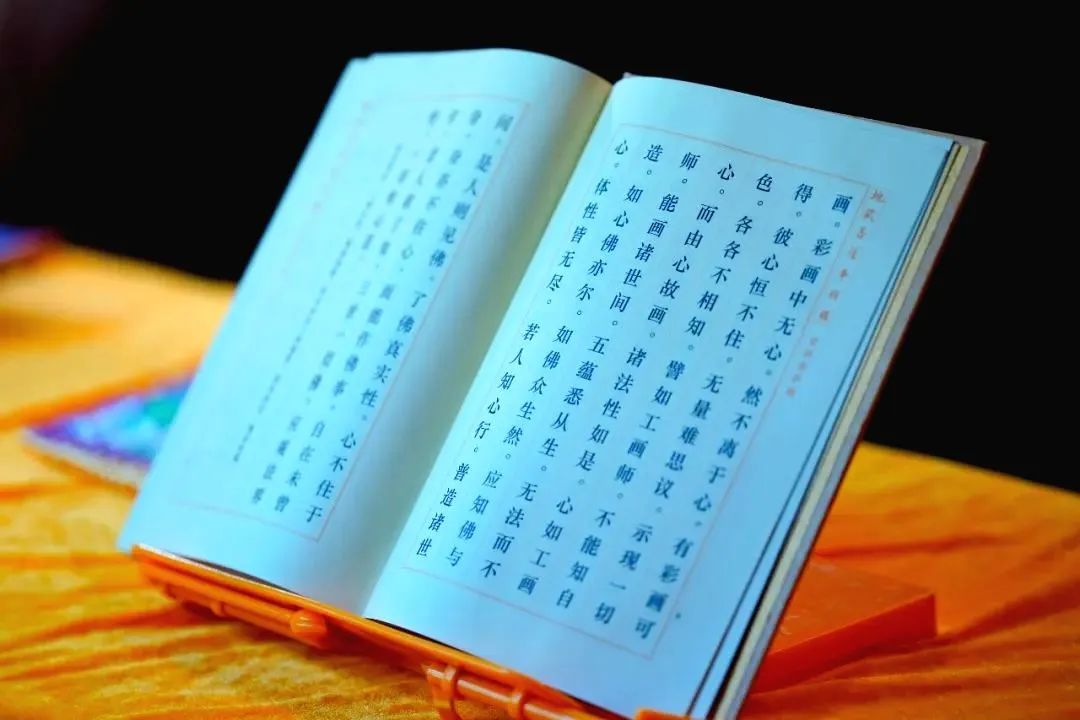 画。彩画中无心。然不离于心。有彩画可
得。彼心恒不住。无量难思议。示现一切
色。各各不相知。譬如工画师。不能知自
心。而由心故画。诸法性如是。心如工画
师。能画诸世间。五蕴悉从生。无法而不
造。如心佛亦尔。如佛众生然。应知佛与
心。体性皆无尽。若人知心行。普造诸世
间。是人则见佛。了佛真实性。心不住于
身。身亦不住心。而能作佛事。自在未曾
有。若人欲了知。三世一切佛。应观法界